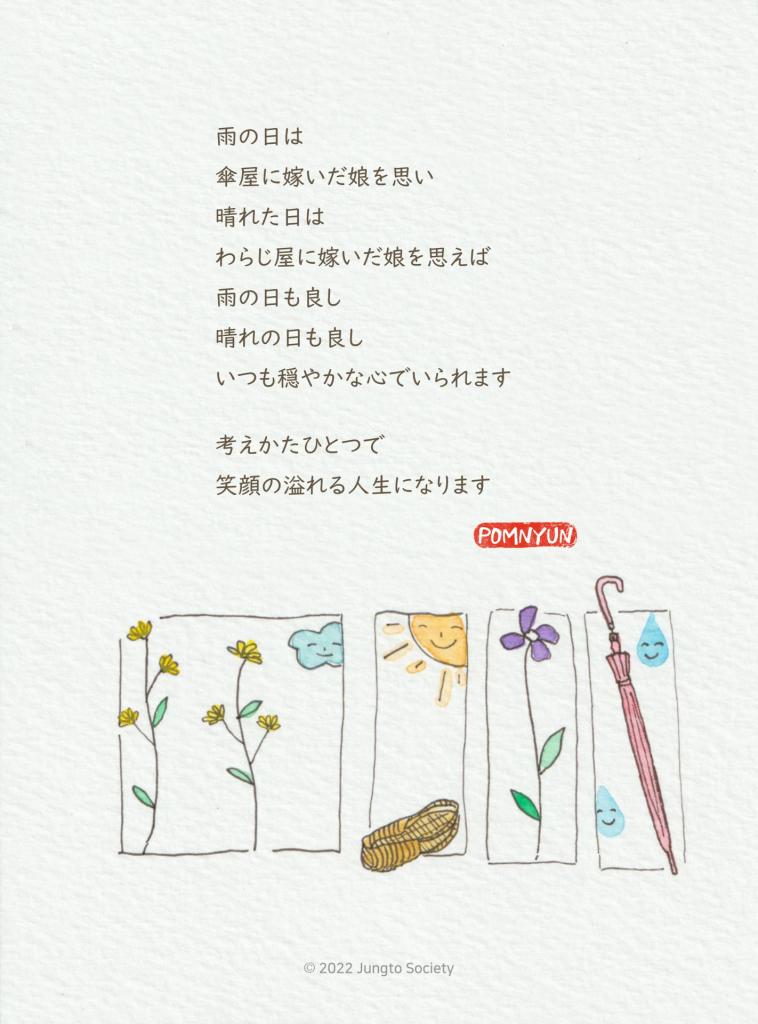 雨の日は
傘屋に嫁いだ娘を思い
晴れた日は
わらじ屋に嫁いだ娘を思えば
雨の日も良し
晴れの日も良し
いつも穏やかな心でいられます
考えかたひとつで
笑顔の溢れる人生になります
POMNYUN
© 2022 Jungto Society